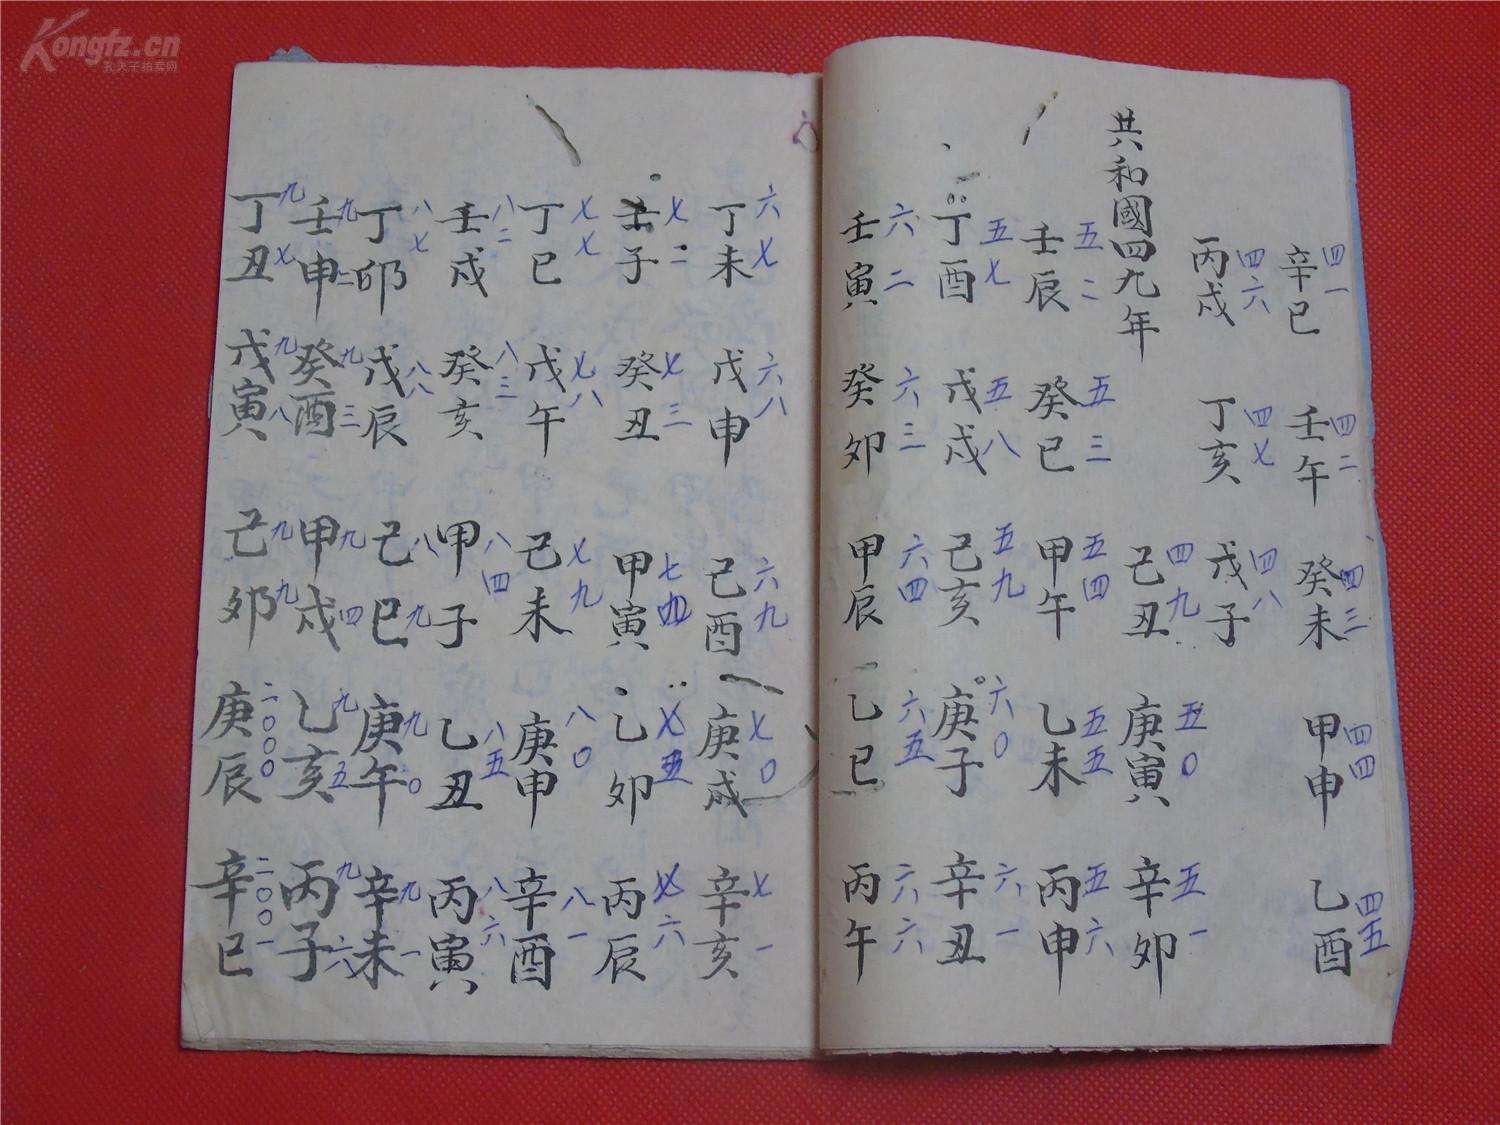 Kongfz.cn
孔夫子拍卖网
辛巳 四一 壬午 四二 癸未 四三 甲申 四四 乙酉 四五
丙戌 四六 丁亥 四七 戊子 四八
共和國四九年 己丑 四九 庚寅 五〇 辛卯 五一
壬辰 五二 癸巳 五三 甲午 五四 乙未 五五 丙申 五六
丁酉 五七 戊戌 五八 己亥 五九 庚子 六〇 辛丑 六一
壬寅 六二 癸卯 六三 甲辰 六四 乙巳 六五 丙午 六六
丁未 六七 戊申 六八 己酉 六九 庚戌 七〇 辛亥 七一
壬子 七二 癸丑 七三 甲寅 七四 乙卯 七五 丙辰 七六
丁巳 七七 戊午 七八 己未 七九 庚申 八〇 辛酉 八一
壬戌 八二 癸亥 八三 甲子 八四 乙丑 八五 丙寅 八六
丁卯 八七 戊辰 八八 己巳 八九 庚午 九〇 辛未 九一
壬申 九二 癸酉 九三 甲戌 九四 乙亥 九五 丙子 九六
丁丑 九七 戊寅 九八 己卯 九九 庚辰 二〇〇〇 辛巳 二〇〇一